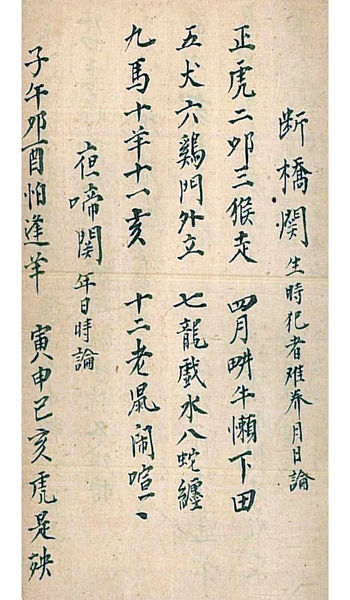 断橋関 生時犯者难养月日論
正虎二卯三猴走 四月畊牛懶下田
五犬六鷄門外立 七龍戲水八蛇纏
九馬十羊十一亥 十二老鼠闹喧〻
夜啼関 年日時論
子午卯酉怕逢羊 寅申巳亥虎是殃